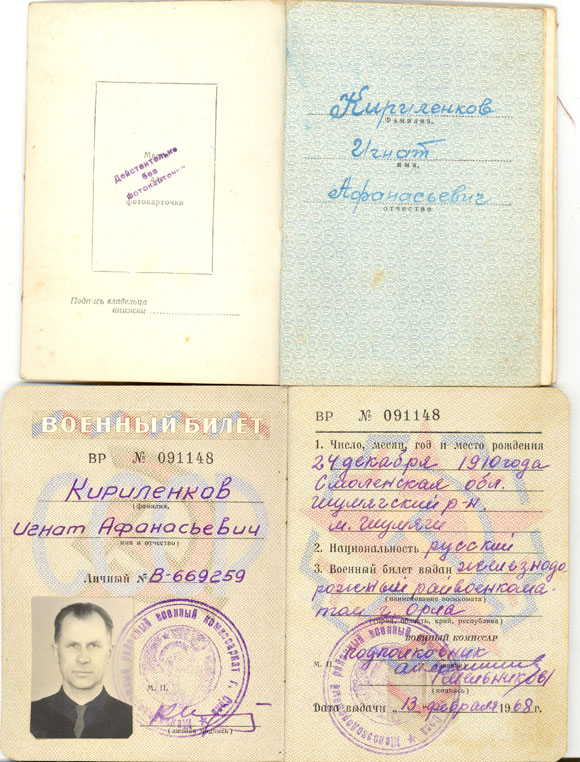 Место
для
фотокарточки
Действительно
без
фотокарточки
Подпись владельца
книжки
Кириленков
фамилия,
Игнат
имя,
Афанасьевич
отчество
ВОЕННЫЙ БИЛЕТ
ВР № 091148
Кириленков
(фамилия,
Игнат Афанасьевич
имя и отчество)
Личный № В-669259
М. П.
(личная подпись)
ВР № 091148
1. Число, месяц, год и место рождения
24 декабря 1910 года
Смоленская обл.
Шумягский р-н.
м. Шумяги
2. Национальность русский
3. Военный билет выдан железнодо
рожным райвоенкома-
(наименование военкомата)
том г. Орла
(город, область, край, республика)
ВОЕННЫЙ КОМИССАР
подполковник
М. П.
(подпись)
Дата выдачи „13" февраля 1968 г.